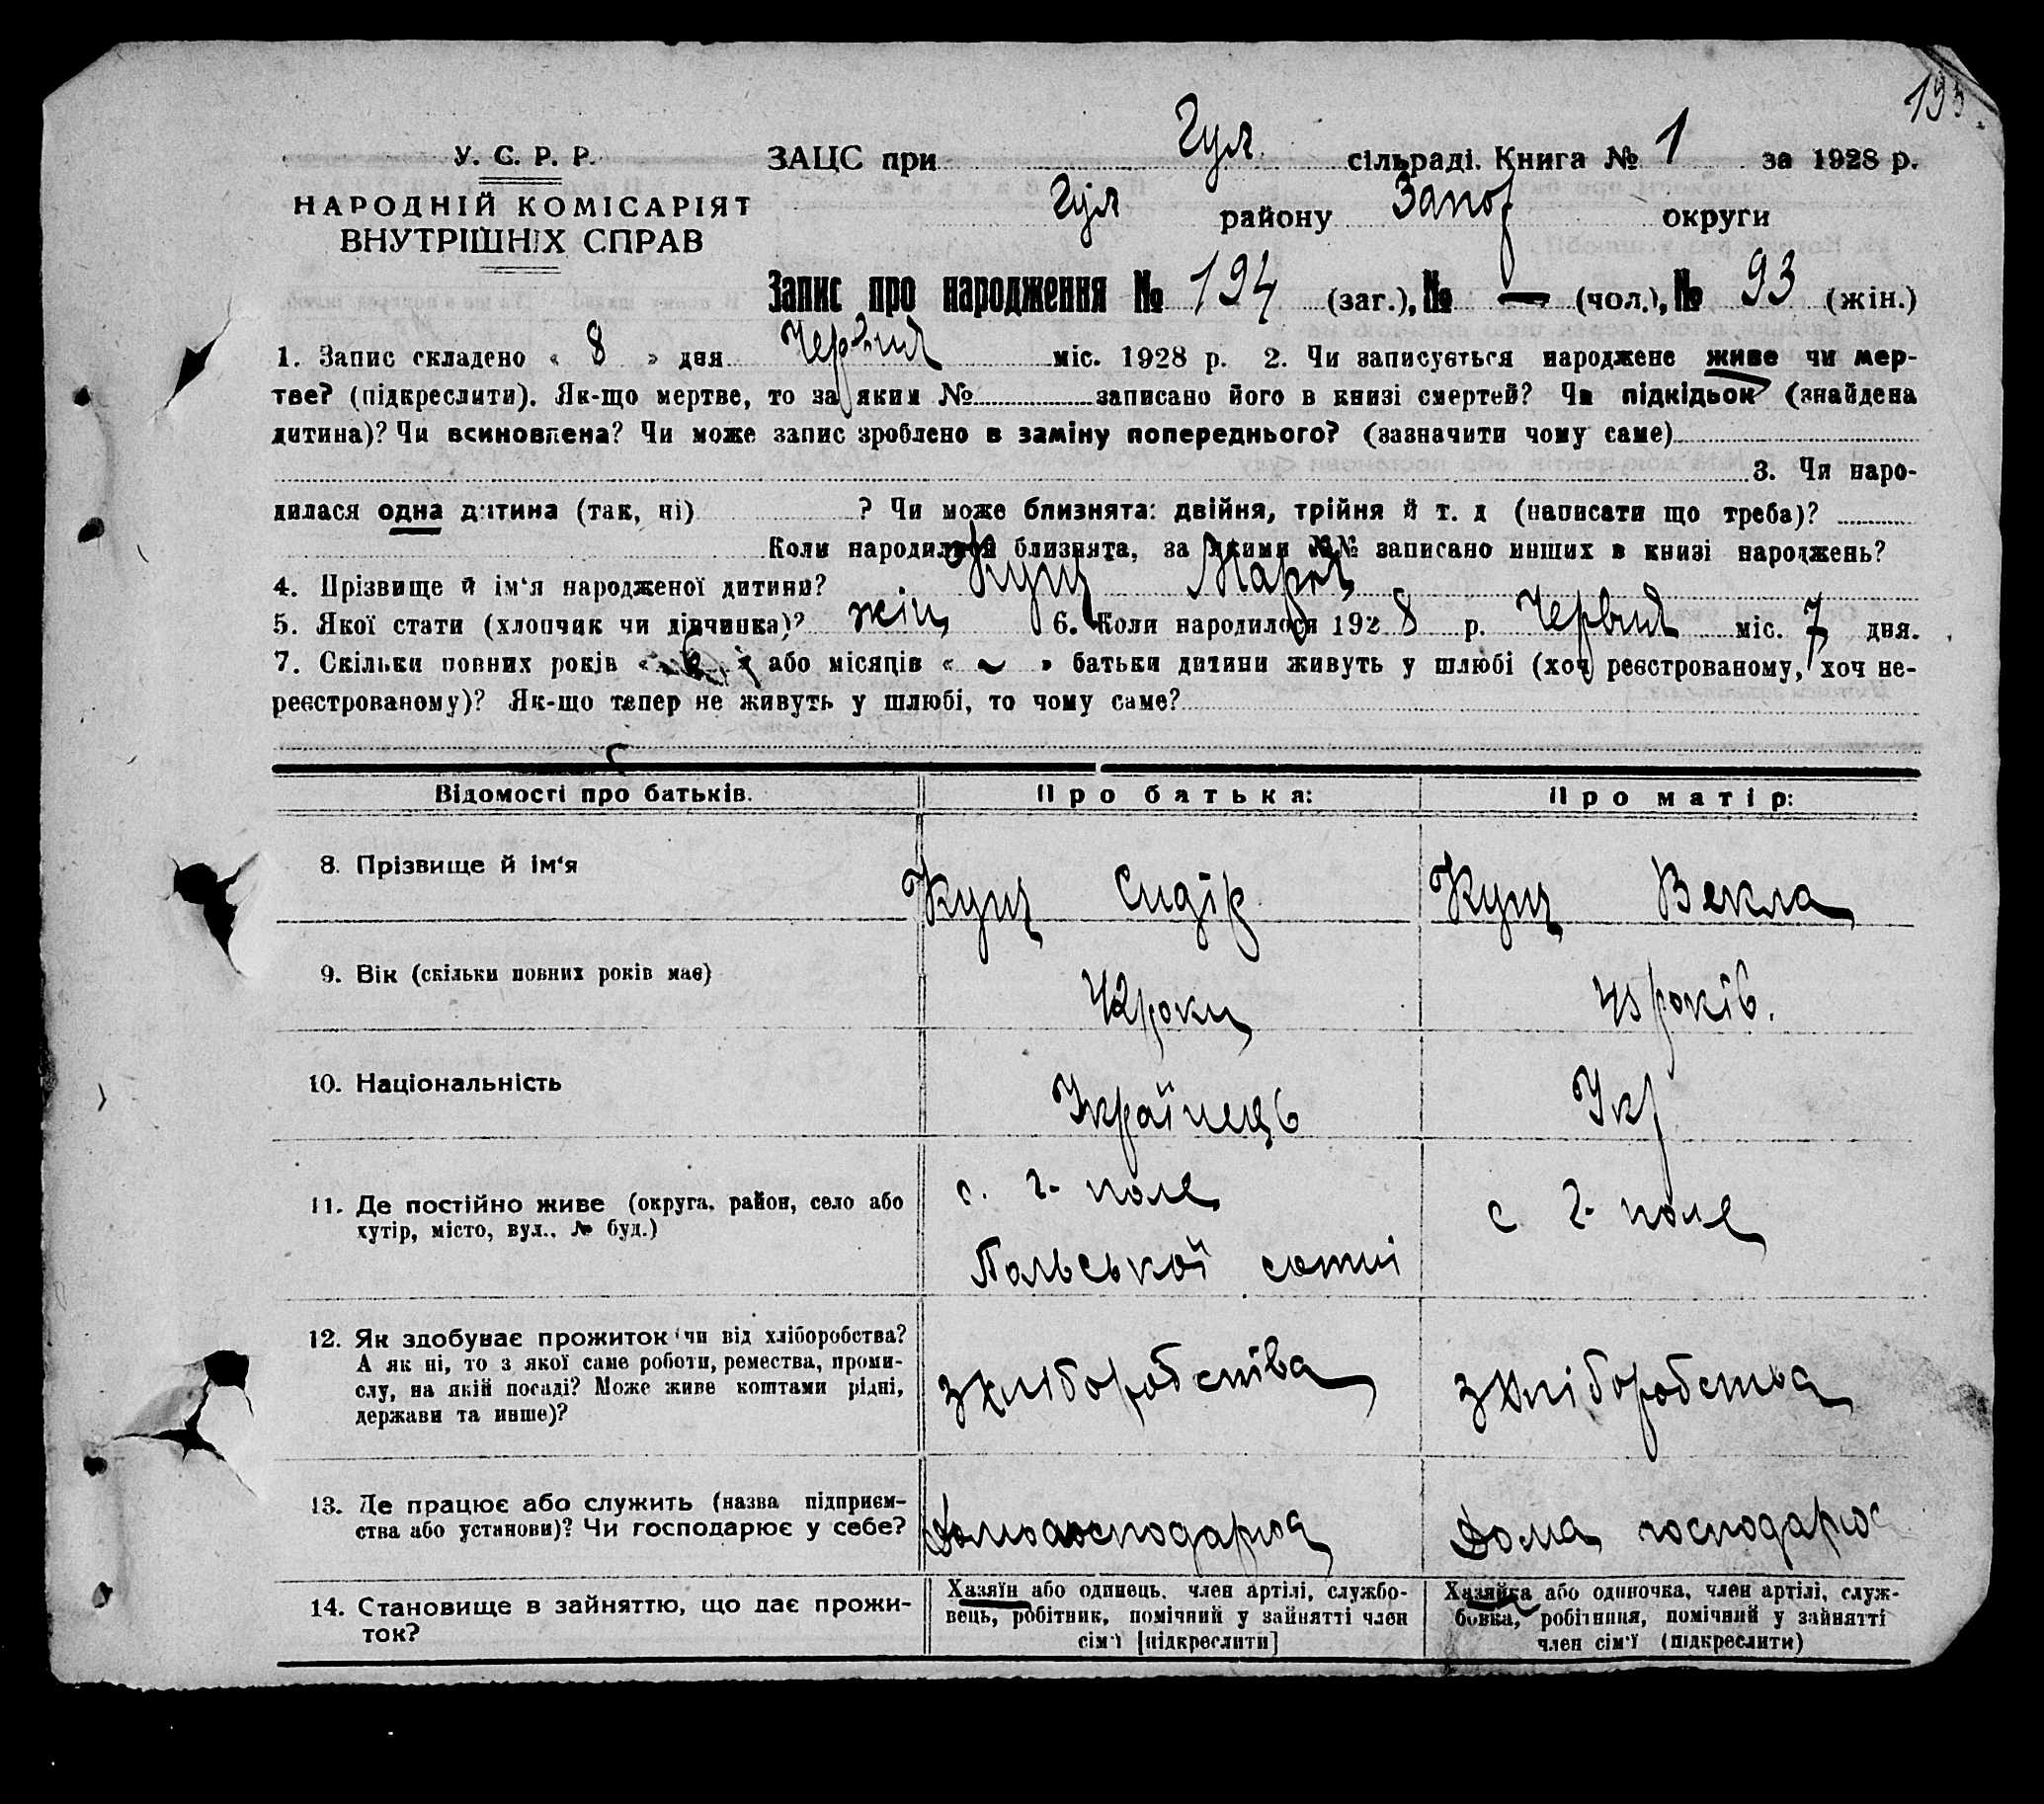 193
У. С. Р. Р. ЗАЦС при Гул. сільраді. Книга № 1 за 1928 р.
НАРОДНІЙ КОМІСАРІЯТ Гул району Запор округи
ВНУТРІШНІХ СПРАВ
Запис про народження № 194 (заг.), № — (чол.), № 93 (жін.)
1. Запис складено « 8 » дня Червня міс. 1928 р. 2. Чи записується народжене живе чи мер-
тве? (підкреслити). Як-що мертве, то за яким № записано його в книзі смертей? Чи підкідьок (знайдена
дитина)? Чи всиновлена? Чи може запис зроблено в заміну попереднього? (зазначити чому саме)
3. Чи наро-
дилася одна дитина (так, ні) ? Чи може близнята: двійня, трійня й т. д (написати що треба)?
Коли народилися близнята, за якими №№ записано инших в книзі народжень?
4. Прізвище й ім'я народженої дитини? Кущ Марія
5. Якої стати (хлопчик чи дівчинка)? жін 6. Коли народилося 1928 р. Червня міс. 7 дня.
7. Скільки повних років « » або місяців « ~ » батьки дитини живуть у шлюбі (хоч реєстрованому, хоч не-
реєстрованому)? Як-що тепер не живуть у шлюбі, то чому саме?
Відомості про батьків. Про батька: Про матір:
8. Прізвище й ім'я Кущ Сидір Кущ Векла
9. Вік (скільки повних років має) 42 роки 45 років.
10. Національність Українець Укр
11. Де постійно живе (округа, район, село або с. Г. поле с Г. поле
хутір, місто, вул., № буд.) Польської сотні
12. Як здобуває прожиток чи від хліборобства?
А як ні, то з якої саме роботи, ремества, проми-
слу, на якій посаді? Може живе коштами рідні, з хліборобства з хліборобства
держави та инше)?
13. Де працює або служить (назва підприєм-
ства або установи)? Чи господарює у себе? Дома господарює Дома господарює
14. Становище в зайняттю, що дає прожи- Хазяїн або одинець, член артілі, службо- Хазяйка або одиночка, член артілі, служ-
ток? вець, робітник, помічний у зайнятті член бовка, робітниця, помічний у зайнятті
сім'ї [підкреслити] член сім'ї (підкреслити)